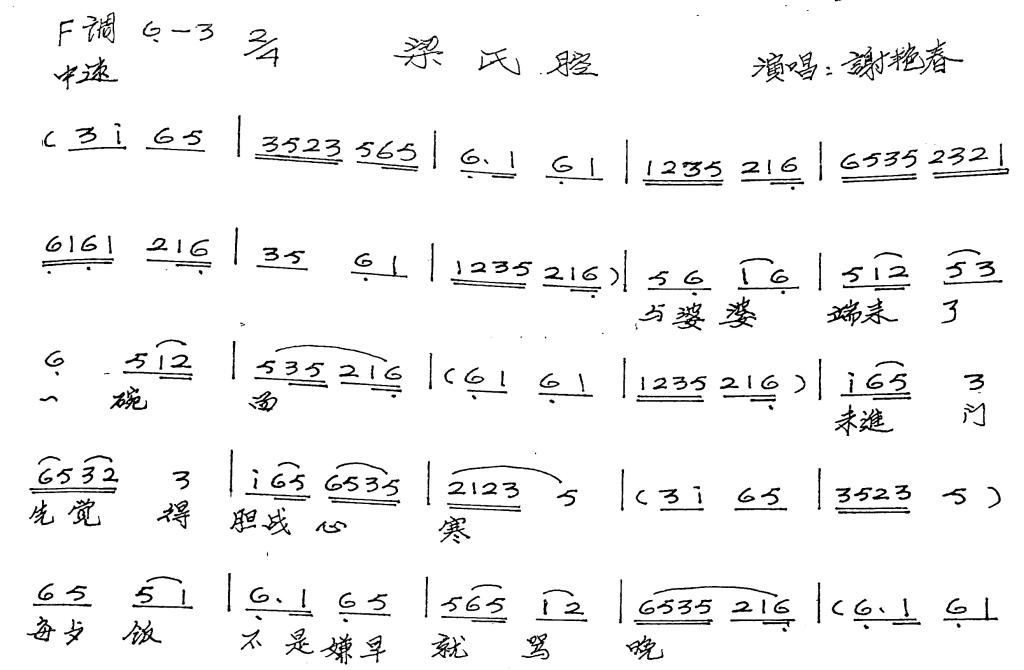 F調 6̣—3 2/4 梁氏腔 演唱：謝艳春
中速
( 3 i 6 5 | 3523 565 | 6̣. 1 6̣ 1 | 1235 216̣ | 6535 2321
6̣16̣1 216̣ | 35 6̣ 1 | 1235 216̣ ) | 5 6̣ 1 6̣ | 512 53
与婆婆 端来 了
6̣ 512 | 535 216̣ | ( 6̣ 1 6̣ 1 | 1235 216̣ ) | i65 3
一 碗 面 未進 门
6532 3 | i65 6535 | 2123 5 | ( 3 i 65 | 3523 5 )
先觉 得 胆战 心 寒
65 51 | 6̣. 1 6̣ 5 | 565 12 | 6535 216̣ | ( 6̣. 1 6̣ 1
每 饭 不是嫌早 就 骂 晚